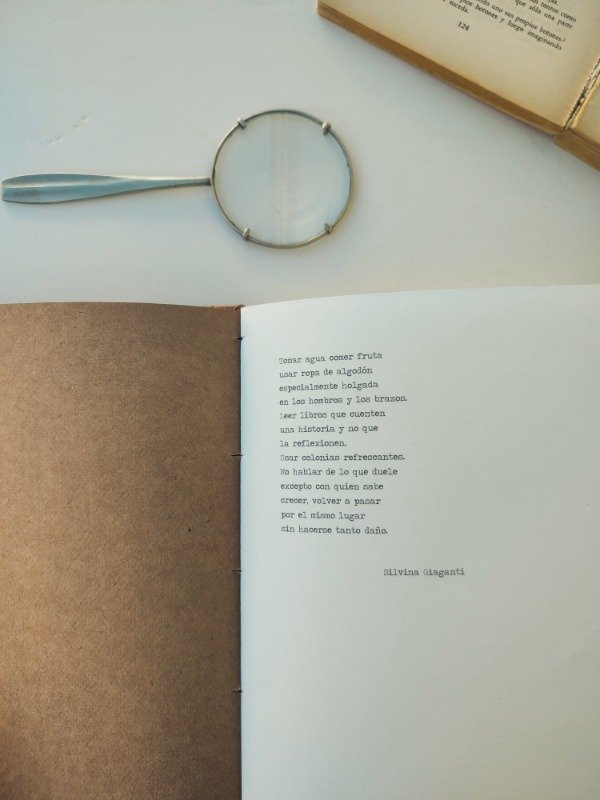 que sólo una parte
suceda.
uno sus propios botones?
botones y luego imaginando
124
Tomar agua comer fruta
usar ropa de algodón
especialmente holgada
en los hombros y los brazos.
Leer libros que cuenten
una historia y no que
la reflexionen.
Usar colonias refrescantes.
No hablar de lo que duele
excepto con quien sabe
crecer, volver a pasar
por el mismo lugar
sin hacerse tanto daño.
Silvina Giaganti